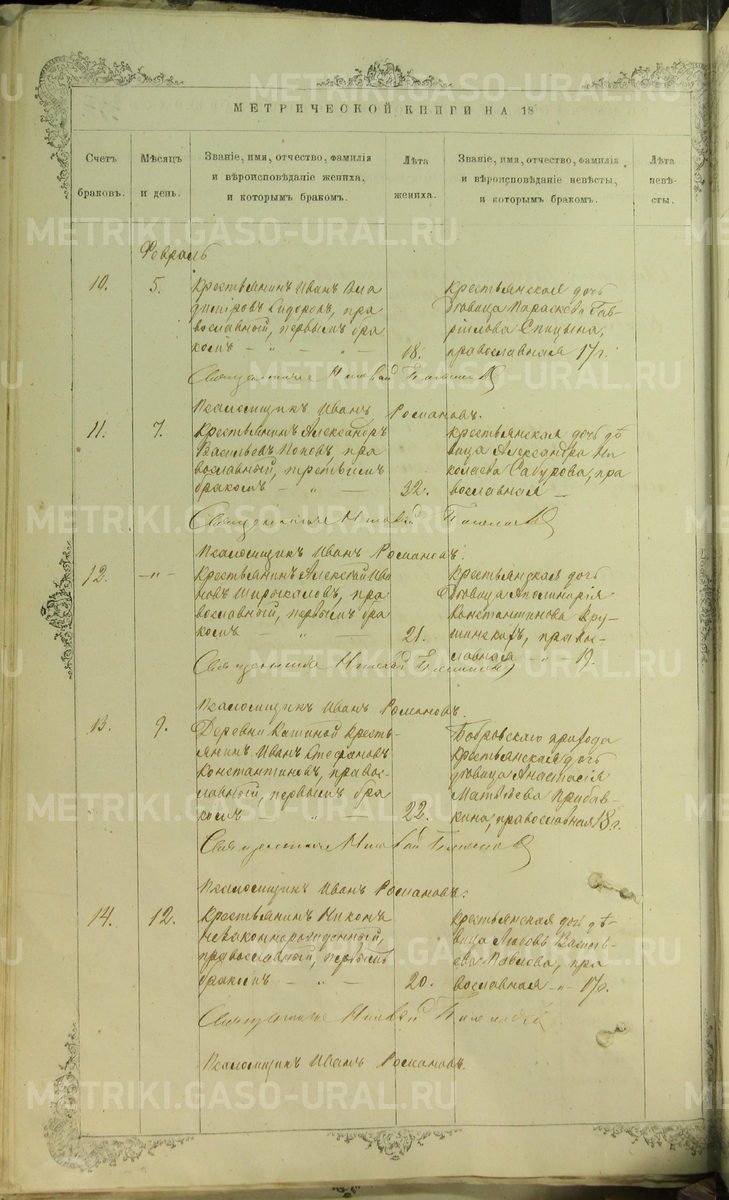 МЕТРИЧЕСКОЙ КНИГИ НА 18
Счетъ браковъ.
Мѣсяцъ и день.
Званіе, имя, отчество, фамилія и вѣроисповѣданіе жениха, и которымъ бракомъ.
Лѣта жениха.
Званіе, имя, отчество, фамилія и вѣроисповѣданіе невѣсты, и которымъ бракомъ.
Лѣта невѣсты.
Февраль
10. 5.
Крестьянинъ Иванъ
Сидоровъ, пра
вославный, первымъ бра
комъ - „ - „ -
18.
Крестьянская дочь
дѣвица Параскева Гав-
рiилова Спицына,
православная 17 г.
Священникъ
Псаломщикъ Иванъ Романовъ.
11. 7.
Крестьянинъ Александръ
Васильевъ Поповъ, пра
вославный, третьимъ
бракомъ - „ -
32.
Крестьянская дочь дѣ
вица Александра Ни
колаева Сабурова, пра
вославная -
Священникъ
Псаломщикъ Иванъ Романовъ.
12. -„-
Крестьянинъ Алексѣй Ива
новъ Широкаловъ, пра
вославный, первымъ бра
комъ - „ -
21.
Крестьянская дочь
дѣвица Аполинарія
Константинова
правос-
лавная - „ - 19.
Священникъ
Псаломщикъ Иванъ Романовъ.
13. 9.
Деревни кресть-
янинъ Иванъ Стефановъ
Константиновъ, правос-
лавный, первымъ бра
комъ - „ -
22.
Бобровскаго прихода
крестьянская дочь
дѣвица Анастасія
Матвѣева Прибав-
кина, православная 18 г.
Священникъ
Псаломщикъ Иванъ Романовъ.
14. 12.
Крестьянинъ Никонъ
незаконнорожденный,
православный, первымъ
бракомъ - „ -
20.
Крестьянская дочь дѣ-
вица Любовь Василь-
ева Павлова, пра
вославная -„- 17 г.
Священникъ
Псаломщикъ Иванъ Романовъ.
METRIKI.GASO-URAL.RU